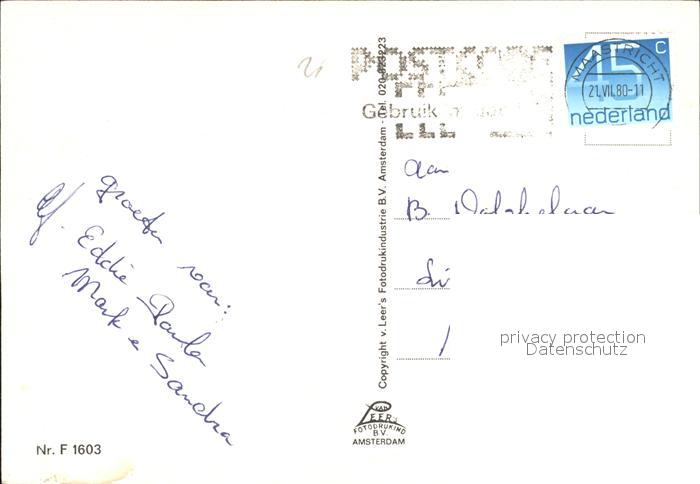 POSTCODE
Gebruik
45 c
nederland
MAASTRICHT
21.VII.80-11
Groeten van:
Eddie Paula
Mark e Sandra
Aan
B.
privacy protection
Datenschutz
Copyright v. Leer's Fotodrukindustrie B.V. Amsterdam - Tel. 020-323223
VAN
LEER
FOTODRUKIND
B.V.
AMSTERDAM
Nr. F 1603